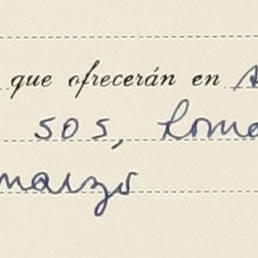 que ofrecerán en
505, Loma
marzo